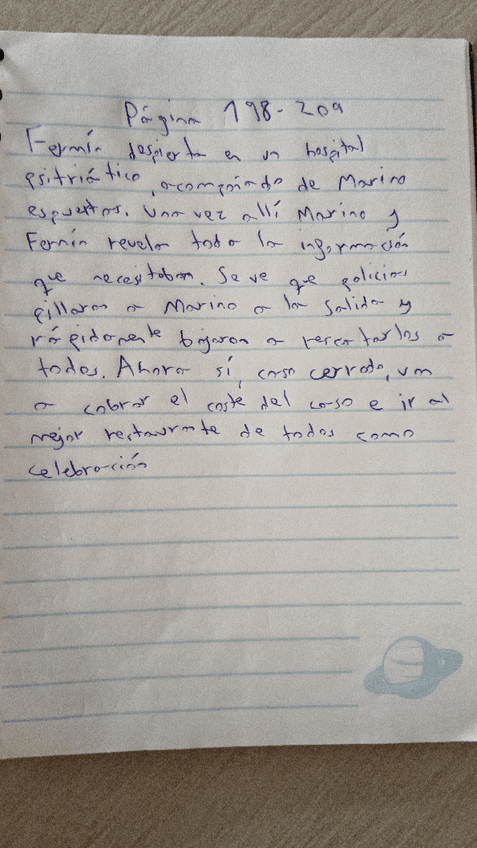 Página 198-209
Fermín despierta en un hospital
psitriático, acompañado de Marino
espuertos. Una vez allí Marino y
Fermín revela toda la información
que necesitaban. Se ve que policias
pillaron a Marino a la salida y
rápidamente bajaron a rescatarlos a
todos. Ahora sí, caso cerrado, van
a cobrar el coste del caso e ir al
mejor restaurante de todos como
celebración